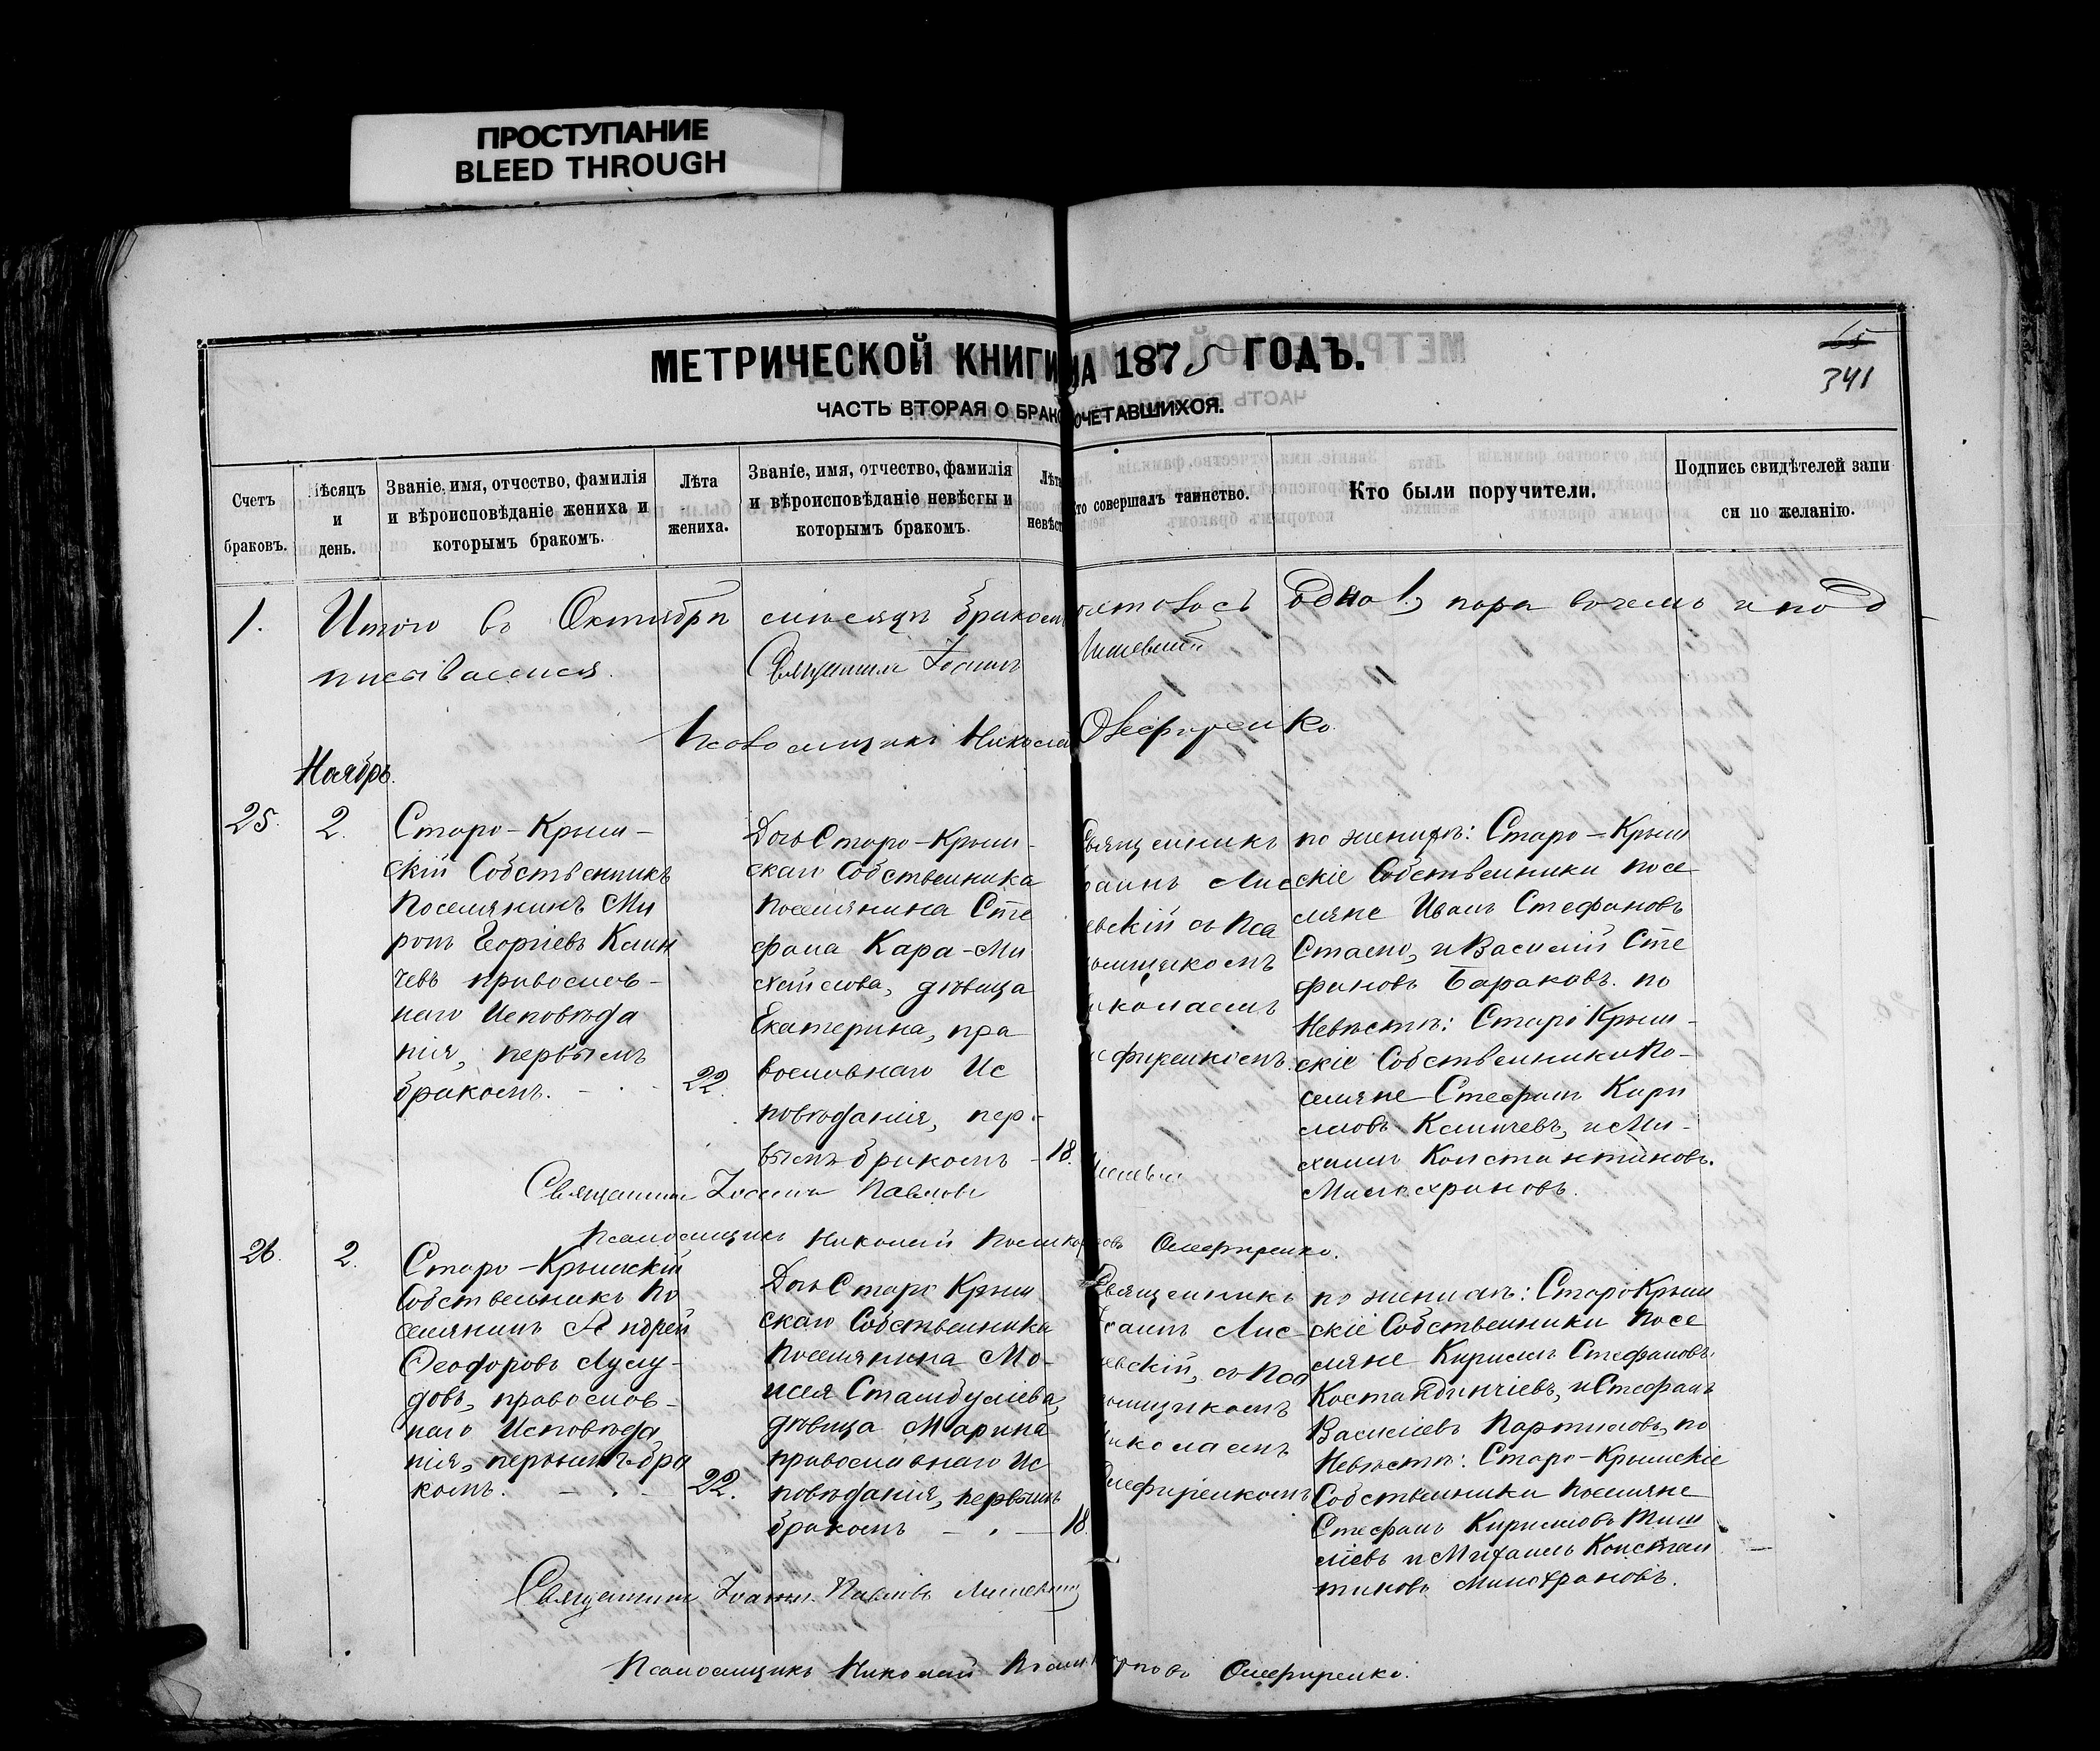 ПРОСТУПАНИЕ
BLEED THROUGH
МЕТРИЧЕСКОЙ КНИГИ НА 1875 ГОДЪ.
65
341
ЧАСТЬ ВТОРАЯ О БРАКОСОЧЕТАВШИХСЯ.
Счетъ браковъ.
Мѣсяцъ и день.
Званіе, имя, отчество, фамилія
и вѣроисповѣданіе жениха и
которымъ бракомъ.
Лѣта жениха.
Званіе, имя, отчество, фамилія
и вѣроисповѣданіе невѣсты и
которымъ бракомъ.
Лѣта невѣст
Кто совершалъ таинство.
Кто были поручители.
Подпись свидѣтелей запи
си по желанію.
1. Итого въ Октябрѣ мѣсяцѣ одна 1, пара вочемъ и под
писываемся. Священникъ Іоаннъ
Псаломщикъ Николай Олефиренко.
Ноябрь.
25.
2.
Старо-Крым-
скій Собственникъ
Поселянинъ Ми
ронъ Георгіевъ
чевъ православ-
наго Исповѣда
нія, первымъ
бракомъ.
22.
Дочь Старо-Крым-
скаго Собственника
Поселянина Сте
фана Кара-Ми
хайлова, дѣвица
Екатерина, пра
вославнаго Ис
повѣданія, пер-
вымъ бракомъ
18.
Священникъ
оаннъ Лис
евскій съ Пса
омщикомъ
иколаемъ
ефиренкомъ.
по женихѣ: Старо-Крым
скіе Собственники посе
ляне Иванъ Стефановъ
и Василій Сте
фановъ Бараковъ. по
Невѣстѣ: Старо Крым-
скіе Собственники По-
селяне Стефанъ Кири
ловъ и Ми-
хаилъ Константиновъ.
Священникъ Іоаннъ Павловъ
Псаломщикъ Николай Олефиренко.
26.
2.
Старо-Крымскій
Собственникъ По
селянинъ Андрей
Ѳеодоровъ Лугу-
довъ, православ-
наго Исповѣда
нія, первымъ бра
комъ.
22.
Дочь Старо Крым
скаго Собственника
Поселянина Мо-
исея Стамбуліева,
дѣвица Марина
православнаго Ис
повѣданія, первымъ
бракомъ
18.
Священникъ
Іоаннъ Лис-
евскій, съ Пса
омщикомъ
иколаемъ
лефиренкомъ
по женихѣ: Старо Крым
скіе Собственники посе
ляне Кириллъ Стефановъ
и Стефанъ
Василіевъ по
Невѣстѣ: Старо-Крымскіе
Собственники поселяне
Стефанъ Кириловъ
и Михаилъ Констан
тиновъ
Священникъ Іоаннъ Павловъ
Псаломщикъ Николай Олефиренко.